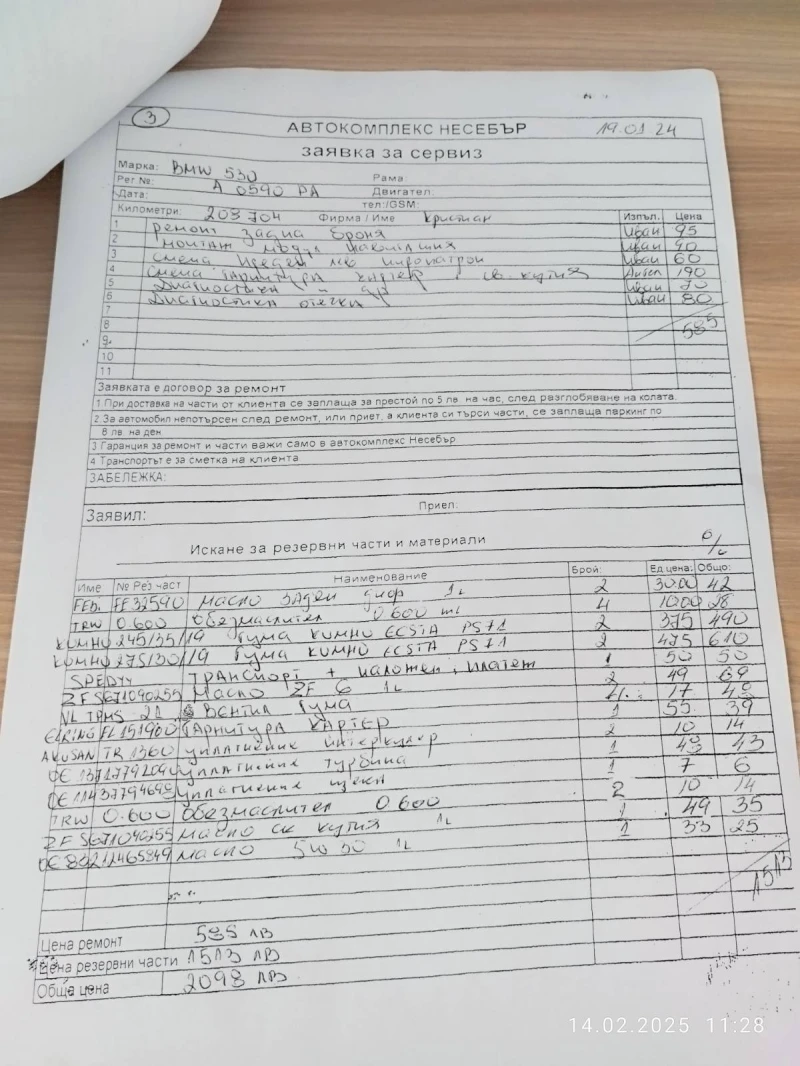 3
АВТОКОМПЛЕКС НЕСЕБЪР 19.01 24
заявка за сервиз
Марка: BMW 530 Рама
Рег №: А 0590 РА Двигател:
Дата: тел:/GSM:
Километри: 203 704 Фирма / Име Кристиан Изпъл. Цена
1 ремонт задна броня Иван 95
2 монтаж Иван 90
3 смяна Иван 60
4 смяна гарнитура картер и ск. кутия 190
5 Диагностика Иван 70
6 Диагностика отечки Иван 80
7
8 585
9
10
11
Заявката е договор за ремонт
1 При доставка на части от клиента се заплаща за престой по 5 лв. на час, след разглобяване на колата.
2 За автомобил непотърсен след ремонт, или приет, а клиента си търси части, се заплаща паркинг по
8 лв. на ден
3 Гаранция за ремонт и части важи само в автокомплекс Несебър
4 Транспортът е за сметка на клиента
ЗАБЕЛЕЖКА:
Заявил: Приел:
Искане за резервни части и материали
Име № Рез част Наименование Брой: Ед цена: Общо:
FEB. FE32590 масло заден диф 1L 2 30.00 42
TRW 0.600 обезмаслител 0.600 ml 4 10.00 28
KUMHO 245/35/19 Гума KUMHO ECSTA PS71 2 375 490
KUMHO 275/30/19 Гума KUMHO ECSTA PS71 2 475 610
SPEDYY Транспорт + наложен платеж 1 50 50
ZF S671090255 Масло ZF 6 1L 2 49 69
VL TPMS 21 Вентил гума 17 48
ELRING EL151900 Гарнитура картер 1 55 39
AKUSAN TR 1360 уплътнение интеркулер 2 10 14
OE уплътнение турбина 1 43
OE 11437794698 уплътнение 1 7 6
TRW 0.600 обезмаслител 0.600 2 10 14
ZF S671090255 масло ск кутия 1L 1 49 35
OE 83212465849 масло 5W30 1L 1 33 25
1513
Цена ремонт 585 лв
Цена резервни части 1513 лв
Обща цена 2098 лв
14.02.2025 11:28